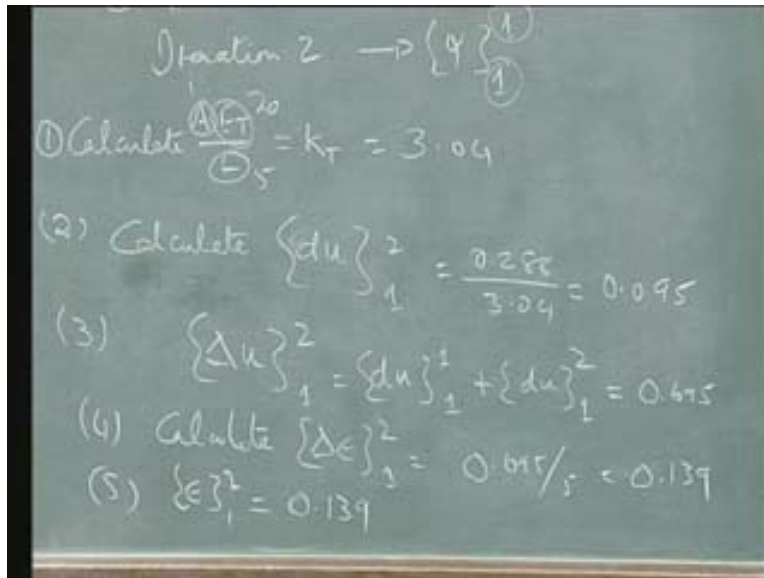 Iteration 2 → {Ψ}₁¹
① Calculate A E_T²⁰ / L₅ = K_T = 3.04
(2) Calculate {du}₁² = 0.288 / 3.04 = 0.095
(3) {Δu}₁² = {du}₁¹ + {du}₁² = 0.695
(4) Calculate {Δε}₁² = 0.695/5 = 0.139
(5) {ε}₁² = 0.139